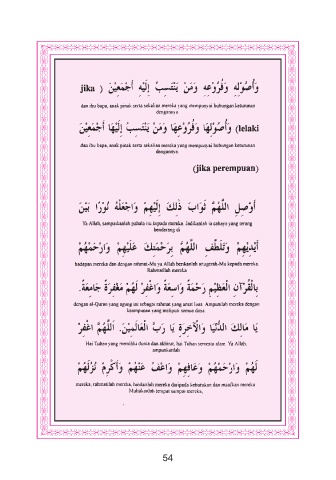 وَأُصُوْلِهِ وَفُرُوْعِهِ وَمَنْ يَنْتَسِبُ إِلَيْهِ أَجْمَعِيْنَ ( jika
dan ibu bapa, anak pinak serta sekalian mereka yang mempunyai hubungan keturunan
dengannya
lelaki) وَأُصُوْلِهَا وَفُرُوْعِهَا وَمَنْ يَنْتَسِبُ إِلَيْهَا أَجْمَعِيْنَ
dan ibu bapa, anak pinak serta sekalian mereka yang mempunyai hubungan keturunan
dengannya
(jika perempuan)
أَوْصِلِ اللَّهُمَّ ثَوَابَ ذٰلِكَ إِلَيْهِمْ وَاجْعَلْهُ نُوْرًا بَيْنَ
Ya Allah, sampaikanlah pahala itu kepada mereka. Jadikanlah ia cahaya yang terang
benderang di
أَيْدِيْهِمْ وَتَلَطَّفِ اللَّهُمَّ بِرَحْمَتِكَ عَلَيْهِمْ وَارْحَمْهُمْ
hadapan mereka dan dengan rahmat-Mu ya Allah berikanlah anugerah-Mu kepada mereka.
Rahmatilah mereka
بِالْقُرْآنِ الْعَظِيْمِ رَحْمَةً وَاسِعَةً وَاغْفِرْ لَهُمْ مَغْفِرَةً جَامِعَةً.
dengan al-Quran yang agung ini sebagai rahmat yang amat luas. Ampunilah mereka dengan
keampunan yang meliputi semua dosa.
يَا مَالِكَ الدُّنْيَا وَالْآخِرَةِ يَا رَبَّ الْعَالَمِيْنَ. اَللَّهُمَّ اغْفِرْ
Hai Tuhan yang memiliki dunia dan akhirat, hai Tuhan semesta alam. Ya Allah,
ampunkanlah
لَهُمْ وَارْحَمْهُمْ وَعَافِهِمْ وَاعْفُ عَنْهُمْ وَأَكْرِمْ نُزُلَهُمْ
mereka, rahmatilah mereka, lepaskanlah mereka daripada keburukan dan maafkan mereka
Muliakanlah tempat sampai mereka,
54